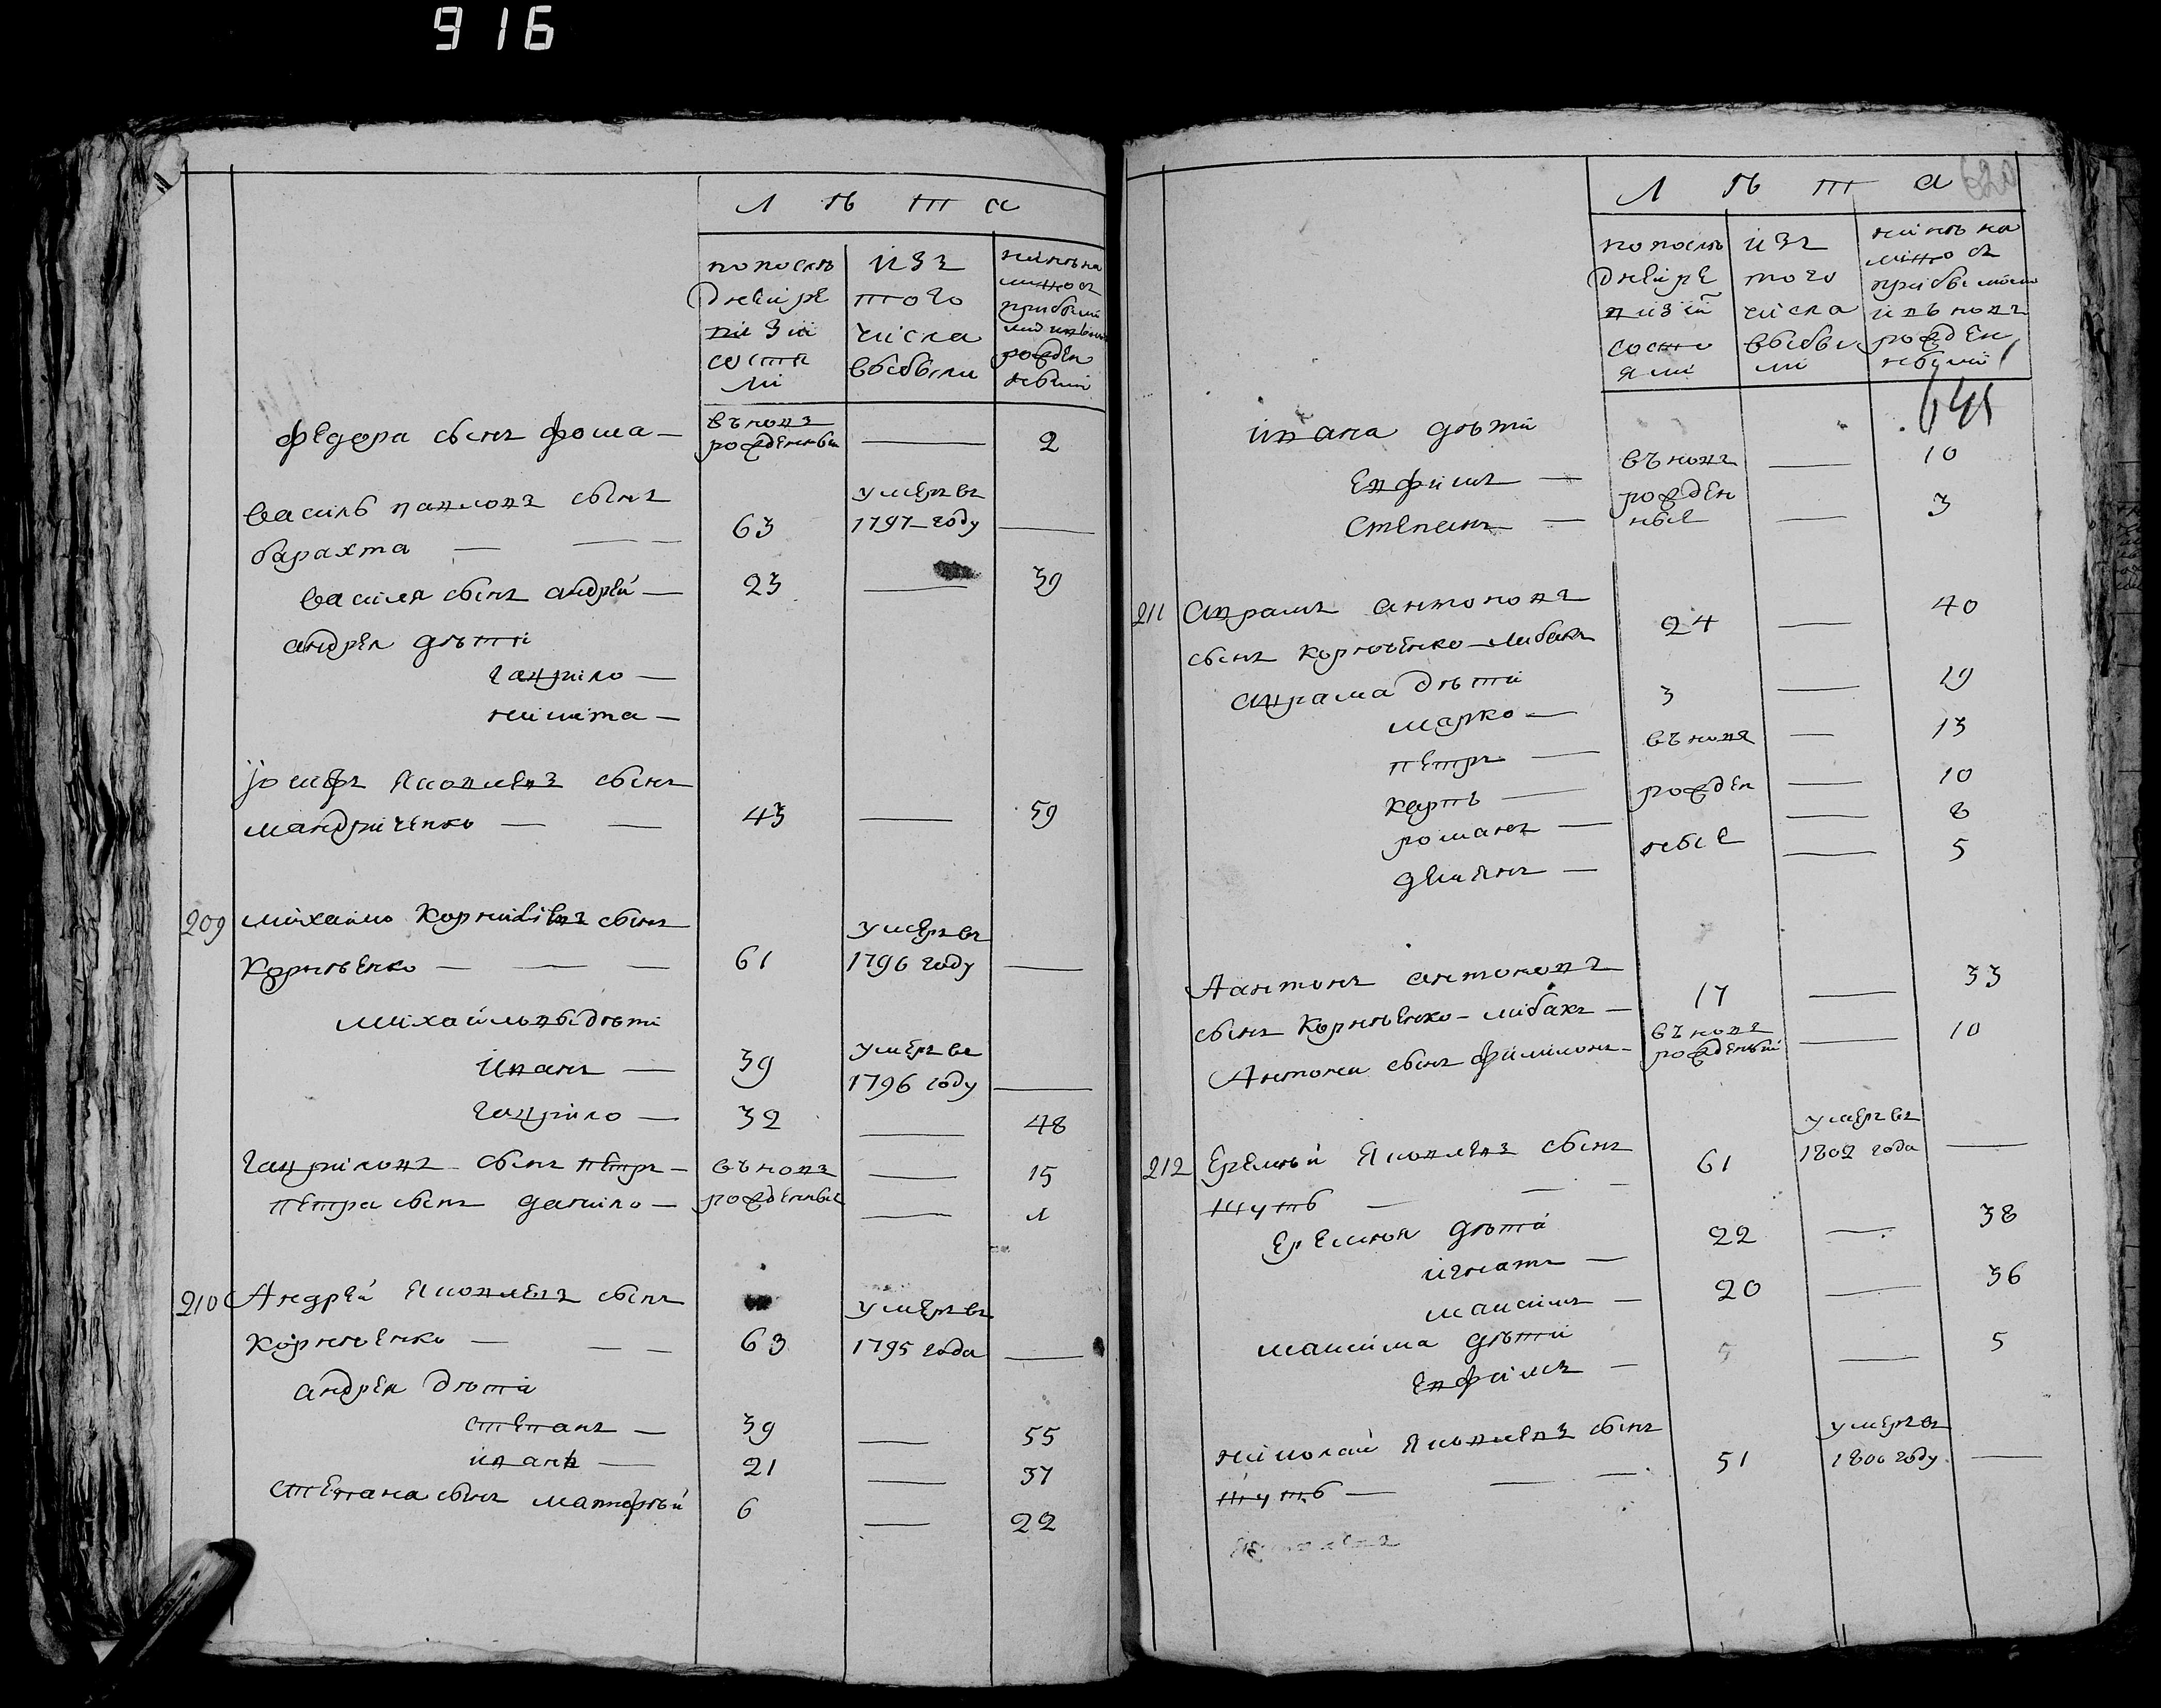 916
Л ѣ т а
по послѣ
дней ре
визіи
состоя
ли
изъ
того
числа
выбыли
нинѣ на
лицо съ
прибылы
ми и вновь
рожден
ными
федора сынъ фома — въновь рожденный — 2
василь павловъ сынъ
барахта — 63 умеръ въ 1797 году —
василя сынъ андрей — 23 — 39
андрея дѣти
гаврило —
никита —
іосифъ яковлевъ сынъ
мандриченко — 43 — 59
209 михайло корніевъ сынъ
корнѣенко — 61 умеръ въ 1796 году —
михайловы дѣти
иванъ — 39 умеръ въ 1796 году —
гаврило — 32 — 48
гавриловъ сынъ петръ — въновь — 15
петра сынъ данило — рожденные — 1
210 Андрей яковлевъ сынъ
корнѣенко — 63 умеръ въ 1795 года —
андрея дѣти
степанъ — 39 — 55
иванъ — 21 — 37
степана сынъ матвѣй 6 — 22
620
Л ѣ т а
по послѣ
дней ре
визіи
состо
яли
изъ
того
числа
выбы
ли
нинѣ на
лицо съ
прибылыми
и вновь
рожден
ными
645
ивана дѣти
евфимъ — въновь — 10
степанъ — рожденные — 3
211 аврамъ антоновъ
сынъ корнѣенко-либакъ 24 — 40
аврама дѣти
марко — 3 — 19
петръ — въновь — 13
карпъ — рожден — 10
романъ — — 8
демянъ — ные — 5
Аантонъ антоновъ
сынъ корнѣенко-либакъ — 17 — 33
Антона сынъ филимонъ — въновь рожденный — 10
212 еремѣй яковлевъ сынъ
шуть — 61 умеръ въ 1802 года —
еремѣя дѣти
игнатъ — 22 — 38
максимъ — 20 — 36
максима дѣти
евфимъ — — 5
николай яковлевъ сынъ
шуть — 51 умеръ въ 1800 году —